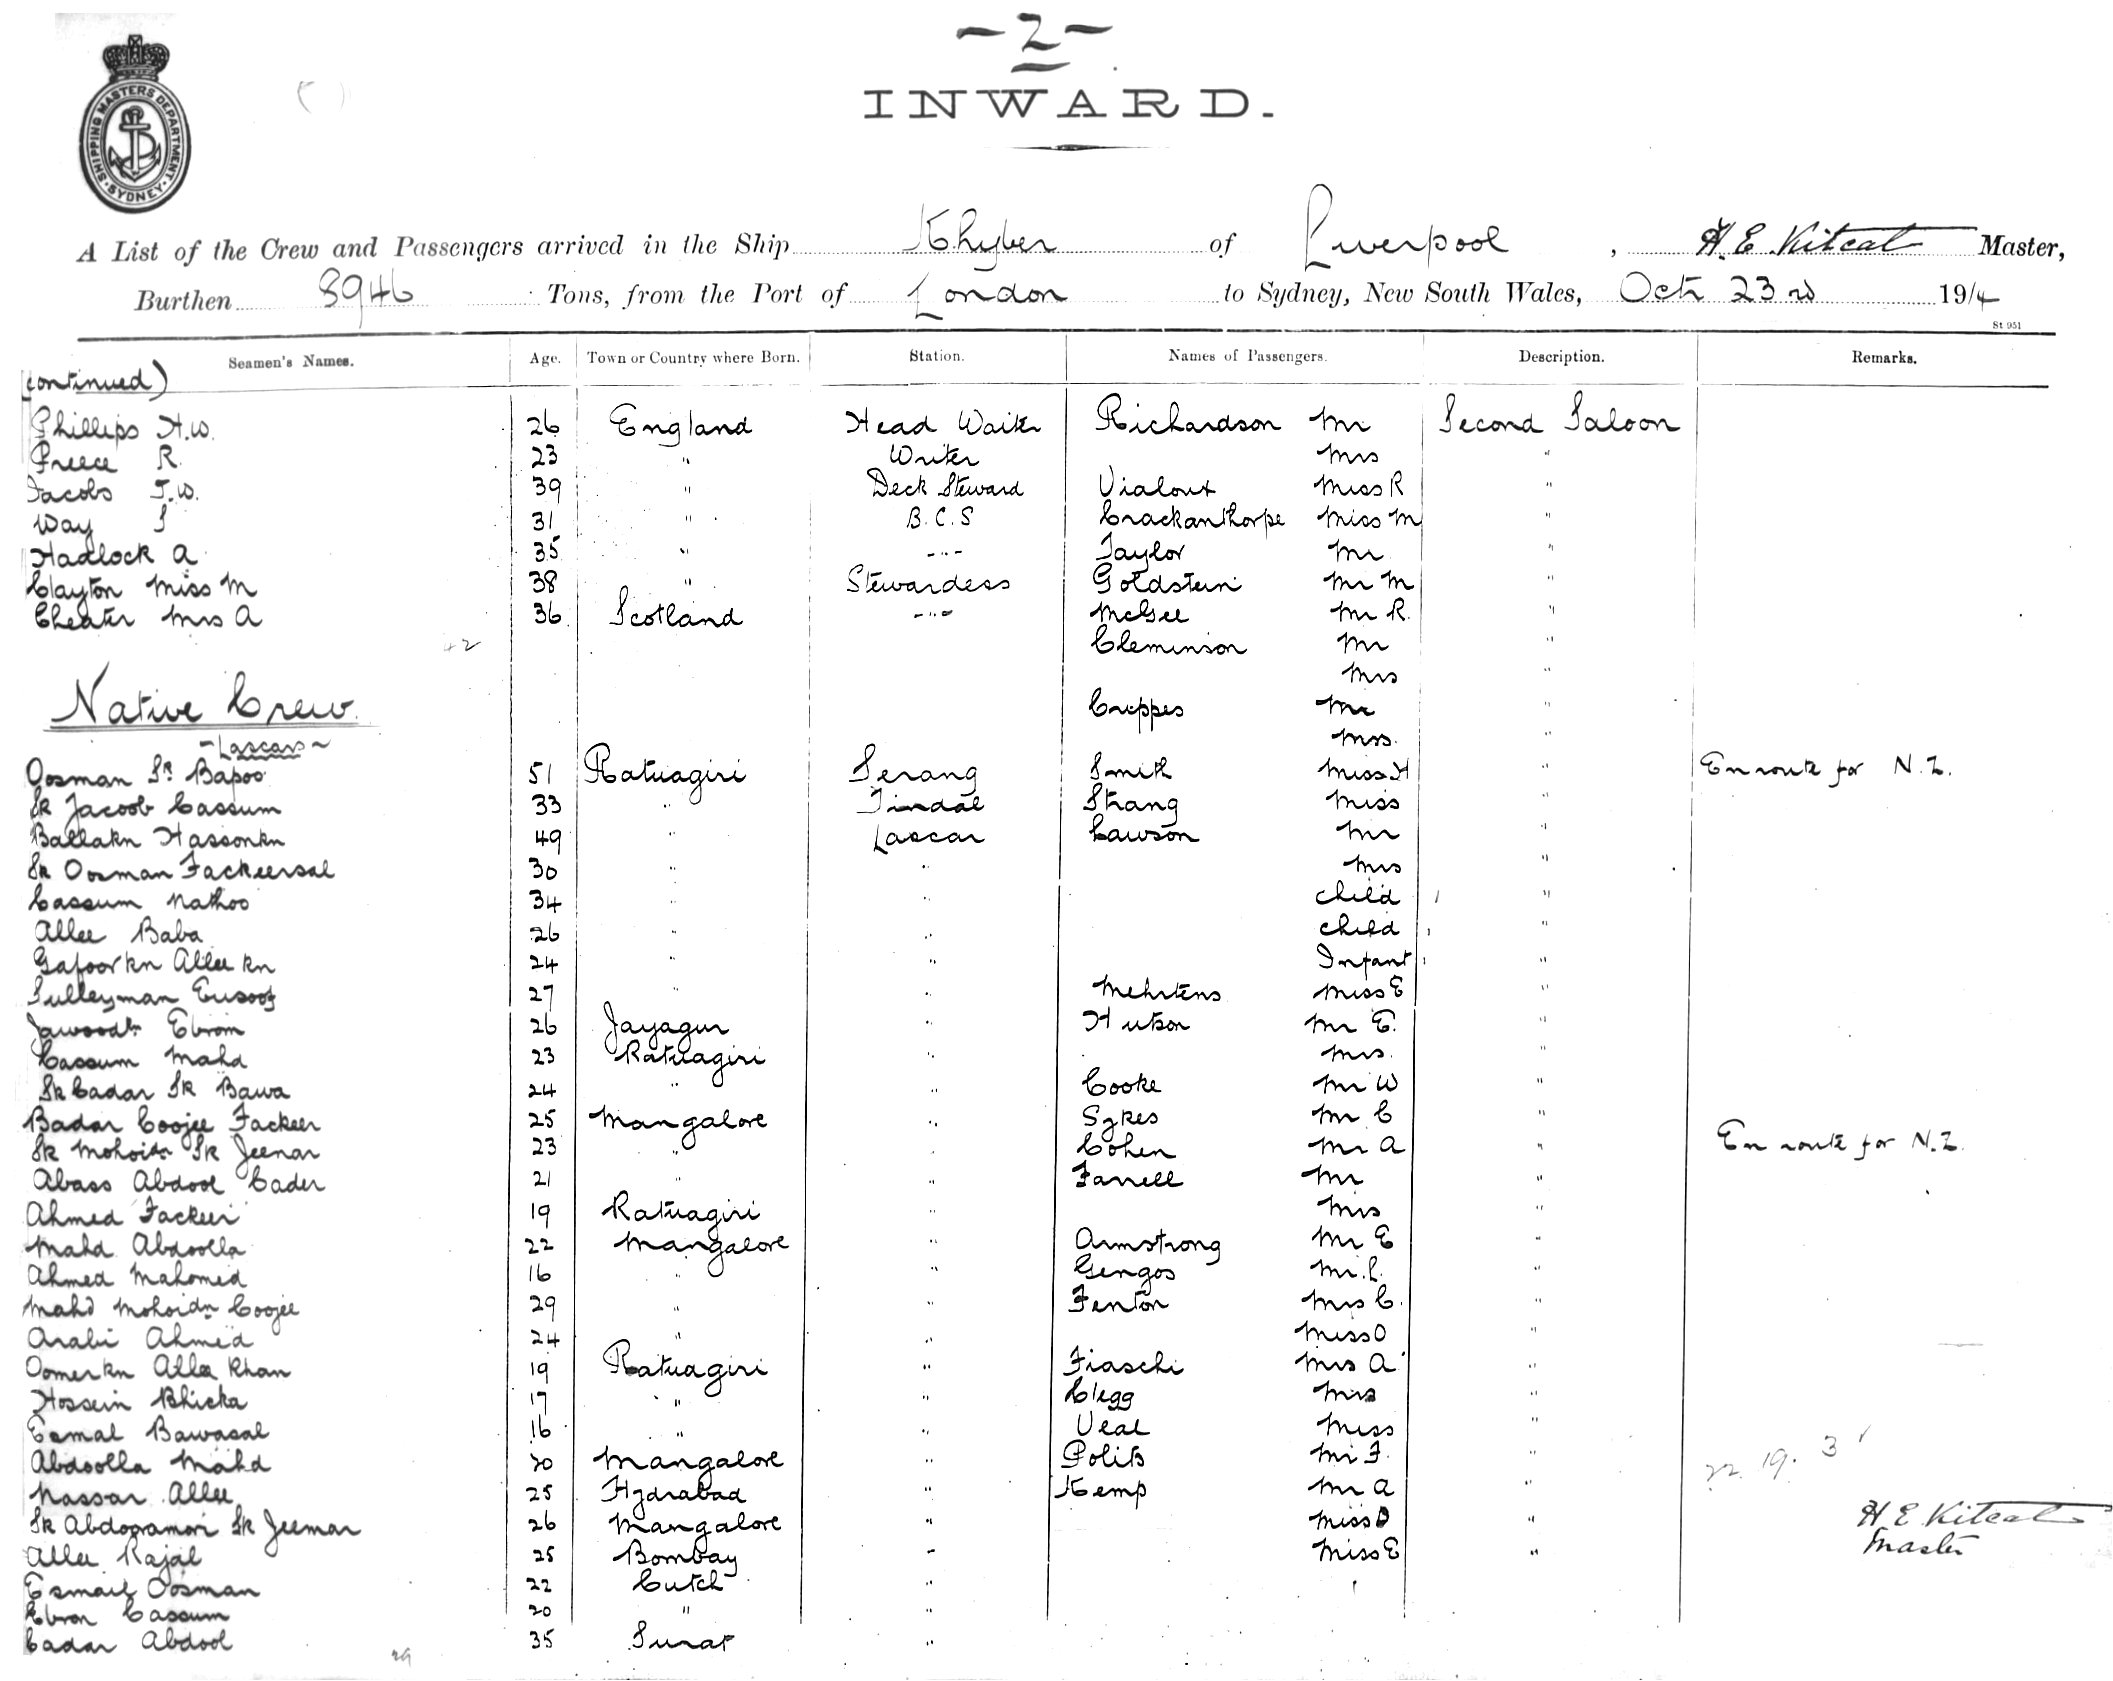 - 2 -
INWARD.
SHIPPING MASTERS DEPARTMENT. SYDNEY
A List of the Crew and Passengers arrived in the Ship Khyber of Liverpool, H. E. Kitcat Master,
Burthen 8946 Tons, from the Port of London to Sydney, New South Wales, Oct 23rd 1914
St 951
Seamen's Names. Age. Town or Country where Born. Station. Names of Passengers. Description. Remarks.
(continued)
Phillips H.W. 26 England Head Waiter Richardson Mr Second Saloon
Preece R. 23 " Writer Mrs "
Jacobs T.W. 39 " Deck Steward Vialoux Miss R "
Way S 31 " B.C.S Crackanthorpe Miss M "
Hadlock A 35 " -"- Taylor Mr "
Clayton Miss M 38 " Stewardess Goldstein Mr M "
Cheater Mrs A 36 Scotland -"- McGee Mr R. "
42 Cleminson Mr "
Mrs "
Native Crew. Crippes Mr "
- Lascars - Mrs. "
Oosman Sk Bapoo 51 Ratnagiri Serang Smith Miss H " En route for N.Z.
Sk Jacoob Cassum 33 " Tindal Strang Miss "
Ballakn Hassonkn 49 " Lascar Cawson Mr "
Sk Oosman Fackeersal 30 " " Mrs "
Cassum Nathoo 34 " " Child "
Allee Baba 26 " " Child "
Gafoorkn Allee kn 24 " " Infant "
Sulleyman Eusoof 27 " " Mehrtens Miss E "
Jawoodn Ebrom 26 Jayagur " Hutson Mr E. "
Cassum Mahd 23 Ratnagiri " Mrs. "
Sk Cadar Sk Bawa 24 " " Cooke Mr W "
Badar Coojee Fackeer 25 Mangalore " Sykes Mr C "
Sk Mohoidn Sk Jeenar 23 " " Cohen Mr A " En route for N.Z.
Abass Abdool Cader 21 " " Farrell Mr "
Ahmed Fackeer 19 Ratnagiri " Mrs "
Mahd Abdoolla 22 Mangalore " Armstrong Mr E "
Ahmed Mahomed 16 " " Gengos Mr. C. "
Mahd Mohoidn Coojee 29 " " Fenton Mrs C. "
Arabi Ahmed 24 " " Miss O "
Oomerkn Allee Khan 19 Ratnagiri " Fiaschi Mrs A "
Hossein Bhicka 17 " " Clegg Mrs "
Esmal Bawasal 16 " " Veal Miss "
Abdoolla Mahd 20 Mangalore " Polits Mr F. " 22. 19. 3
Nassar Allee 25 Hydrabad " Kemp Mr A "
Sk Abdooramon Sk Jeeman 26 Mangalore " Miss D " H E Kitcat
Allee Rajal 25 Bombay " Miss E " Master
Esmail Oosman 22 Cutch "
Ebron Cassum 20 " "
Cadar Abdool 35 Surat "
29